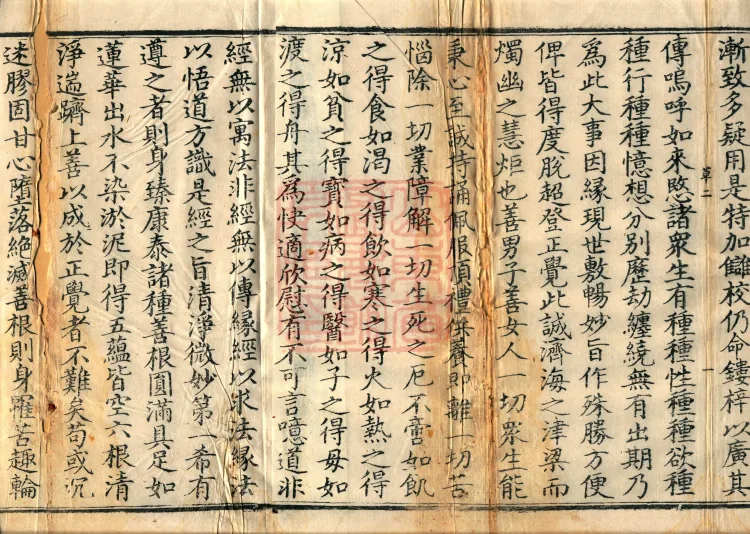 漸致多疑用是特加讎校仍命鏤梓以廣其
傳嗚呼如來愍諸眾生有種種性種種欲種
種行種種憶想分別歷劫纏繞無有出期乃
為此大事因緣現世敷暢妙旨作殊勝方便
俾皆得度脫超登正覺此誠濟海之津梁而
燭幽之慧炬也善男子善女人一切眾生能
秉心至誠持誦佩服頂禮供養即離一切苦
惱除一切業障解一切生死之厄不啻如飢
之得食如渴之得飲如寒之得火如熱之得
涼如貧之得寶如病之得醫如子之得母如
渡之得舟其為快適欣慰有不可言噫道非
經無以寓法非經無以傳緣經以求法緣法
以悟道方識是經之旨清淨微妙第一希有
遵之者則身臻康泰諸種善根圓滿具足如
蓮華出水不染淤泥即得五蘊皆空六根清
淨遄躋上善以成於正覺者不難矣苟或沉
迷膠固甘心墮落絕滅善根則身罹苦趣輪
章二
一